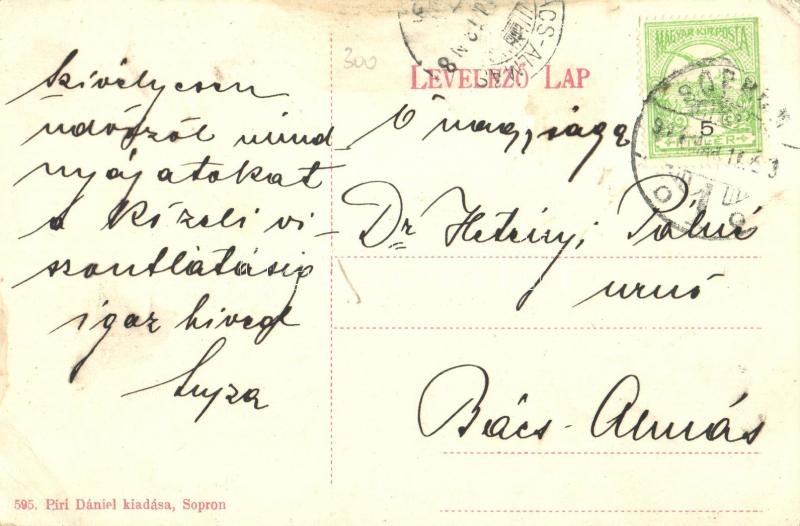 300
LEVELEZŐ LAP
MAGYAR KIR. POSTA
5
FILLÉR
SOPRON
BÁCS-ALMÁS
Szivélyesen
üdvözöl mind
nyájatokat
a közeli vi-
szontlátásig
igaz hived
Lujza
Ő nagysága
Dr Hetényi Pálné
urnő
Bács-Almás
595. Piri Dániel kiadása, Sopron